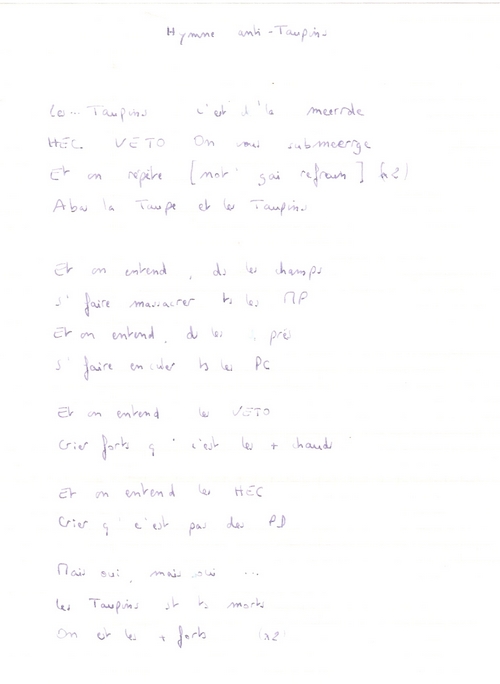 Hymne anti-Taupins
Les... Taupins c'est d'la meerrde
HEC VETO On vous submeerge
Et on répète [not' gai refrain] (x2)
A bas la Taupe et les Taupins
Et on entend, ds les champs
S'faire massacrer ts les MP
Et on entend, ds les prés
S'faire enculer ts les PC
Et on entend les VETO
Crier forts q' c'est les + chauds
Et on entend les HEC
Crier q' c'est pas des PD
Mais oui, mais oui ...
les Taupins st ts morts
On est les + forts (x2)